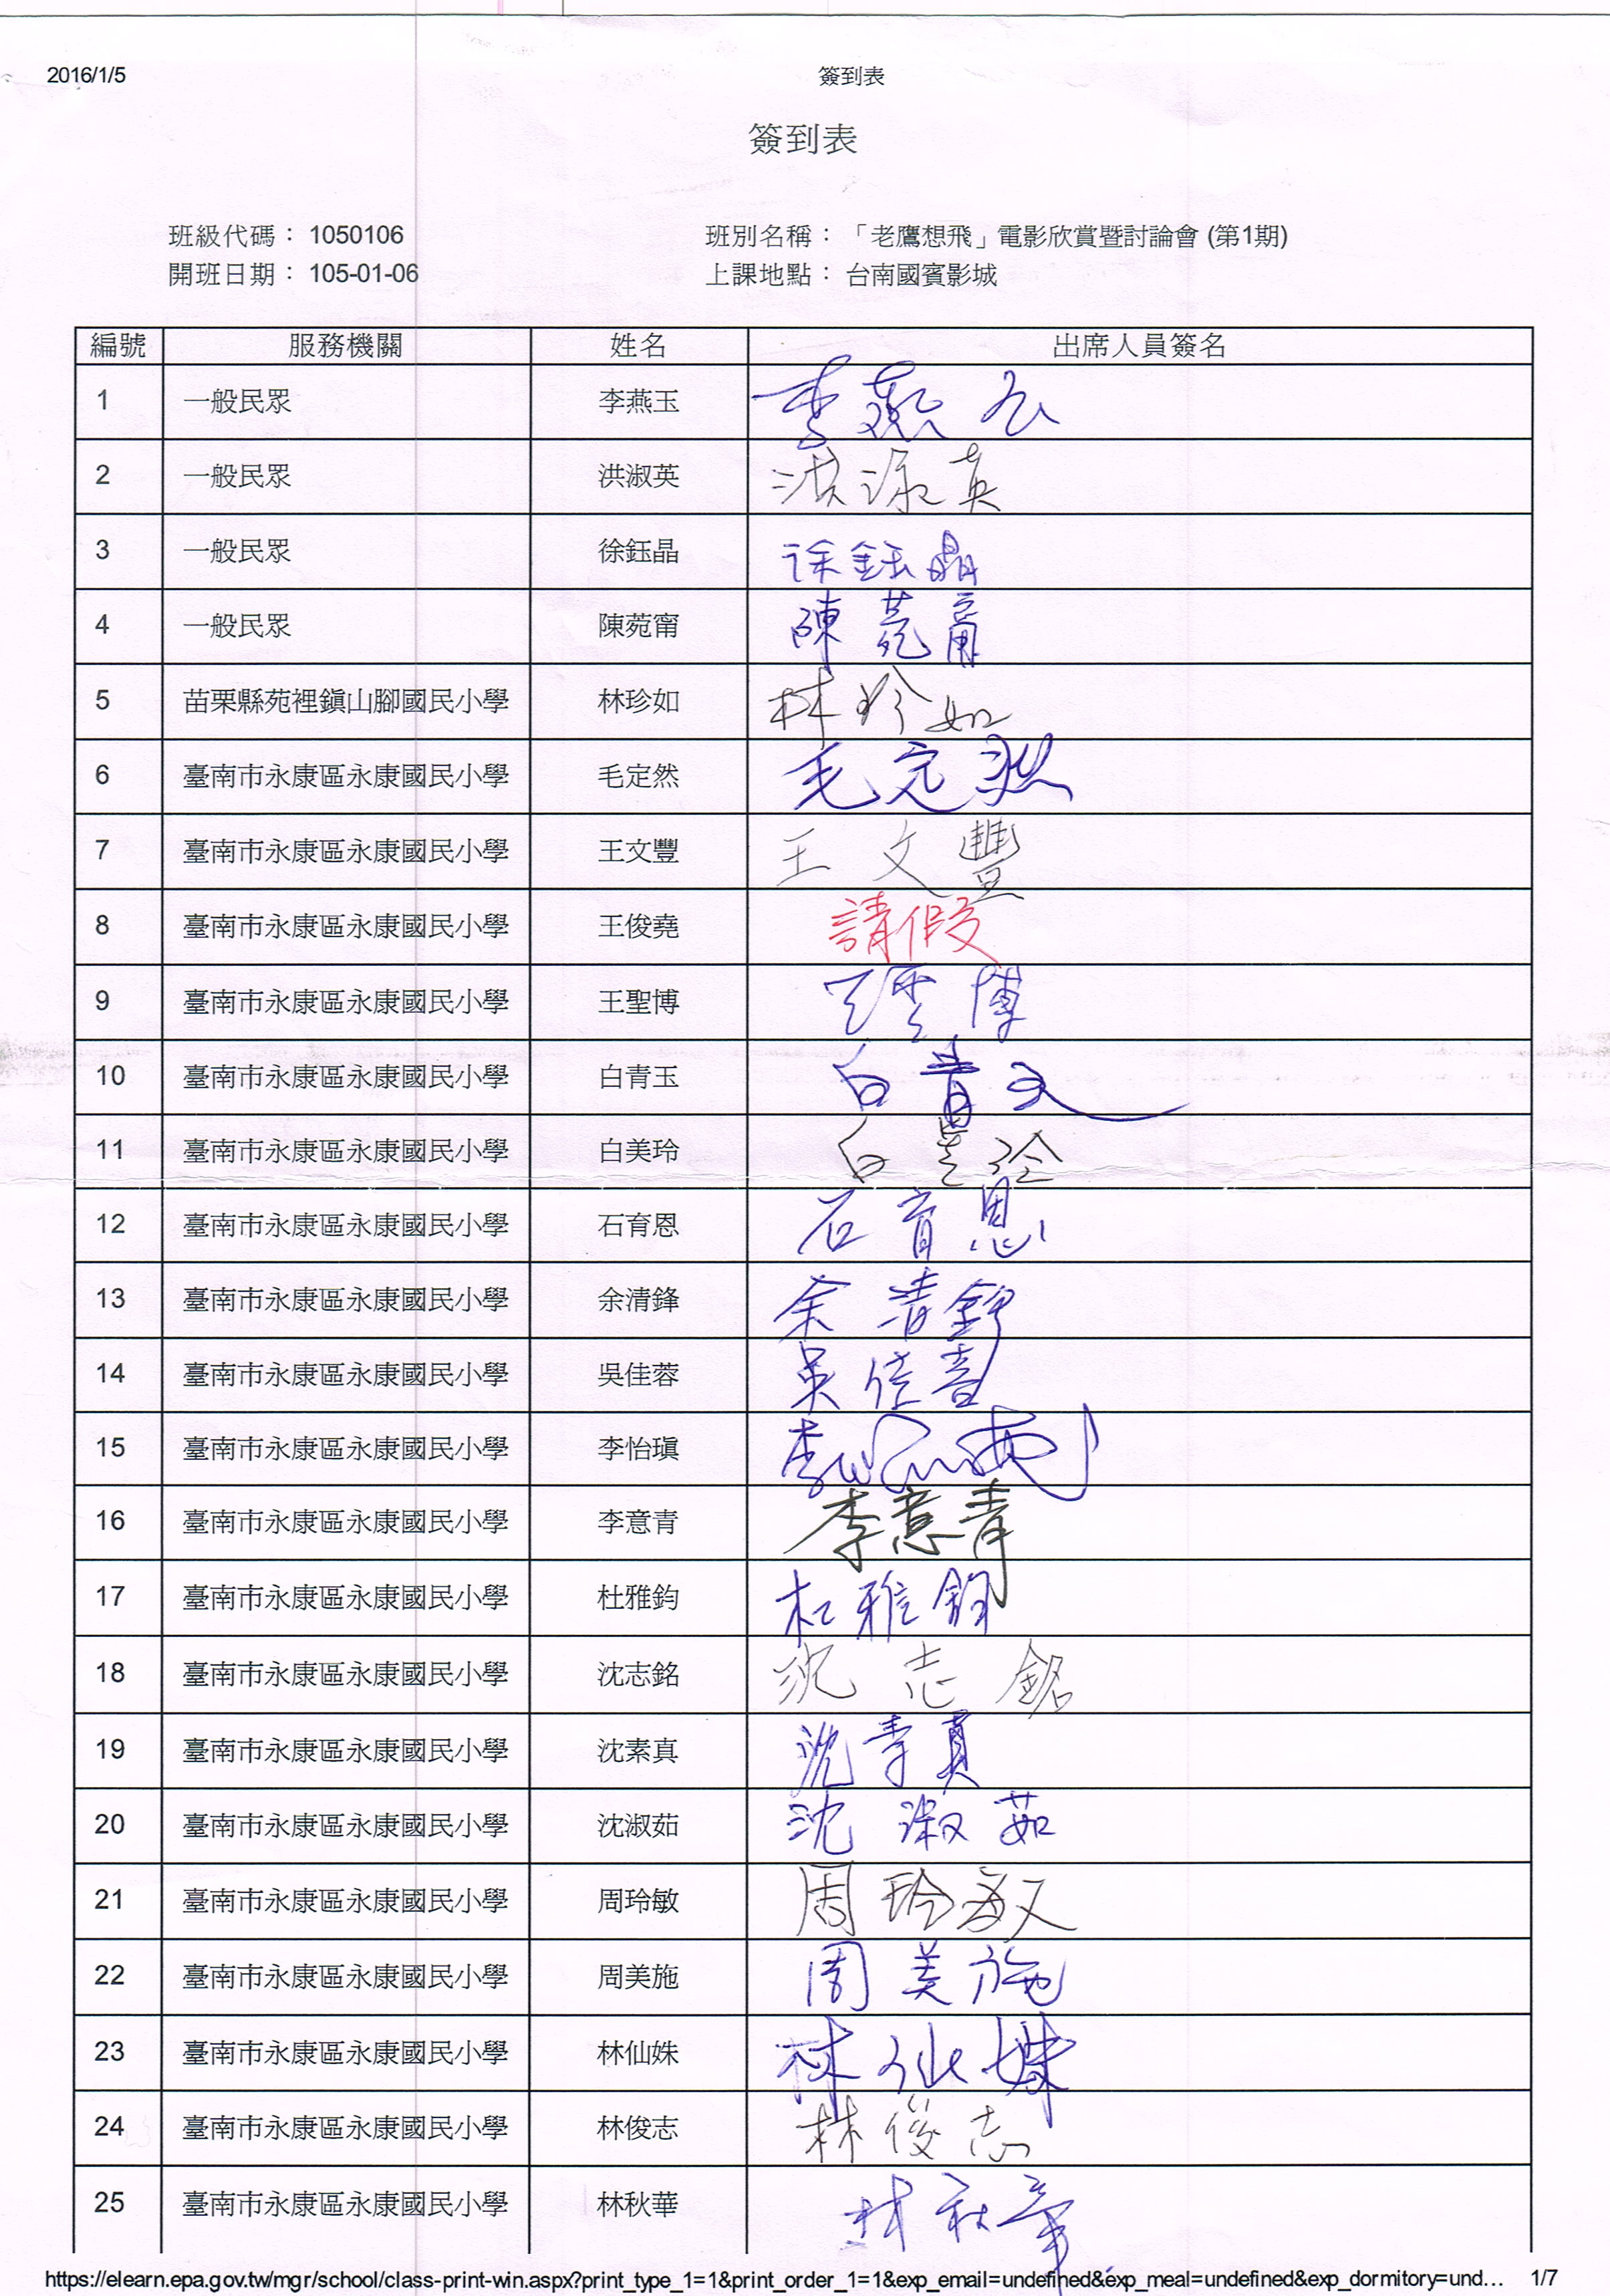 2016/1/5 簽到表
簽到表
班級代碼： 1050106 班別名稱：「老鷹想飛」電影欣賞暨討論會 (第1期)
開班日期： 105-01-06 上課地點： 台南國賓影城
編號 服務機關 姓名 出席人員簽名
1 一般民眾 李燕玉 李燕玉
2 一般民眾 洪淑英 洪淑英
3 一般民眾 徐鈺晶 徐鈺晶
4 一般民眾 陳菀甯 陳菀甯
5 苗栗縣苑裡鎮山腳國民小學 林珍如 林珍如
6 臺南市永康區永康國民小學 毛定然 毛定然
7 臺南市永康區永康國民小學 王文豐 王文豐
8 臺南市永康區永康國民小學 王俊堯 請假
9 臺南市永康區永康國民小學 王聖博 王聖博
10 臺南市永康區永康國民小學 白青玉 白青玉
11 臺南市永康區永康國民小學 白美玲 白美玲
12 臺南市永康區永康國民小學 石育恩 石育恩
13 臺南市永康區永康國民小學 余清鋒 余清鋒
14 臺南市永康區永康國民小學 吳佳蓉 吳佳蓉
15 臺南市永康區永康國民小學 李怡瑱 李
16 臺南市永康區永康國民小學 李意青 李意青
17 臺南市永康區永康國民小學 杜雅鈞 杜雅鈞
18 臺南市永康區永康國民小學 沈志銘 沈志銘
19 臺南市永康區永康國民小學 沈素真 沈素真
20 臺南市永康區永康國民小學 沈淑茹 沈淑茹
21 臺南市永康區永康國民小學 周玲敏 周玲敏
22 臺南市永康區永康國民小學 周美施 周美施
23 臺南市永康區永康國民小學 林仙姝 林仙姝
24 臺南市永康區永康國民小學 林俊志 林俊志
25 臺南市永康區永康國民小學 林秋華 林秋華
https://elearn.epa.gov.tw/mgr/school/class-print-win.aspx?print_type_1=1&print_order_1=1&exp_email=undefined&exp_meal=undefined&exp_dormitory=und... 1/7